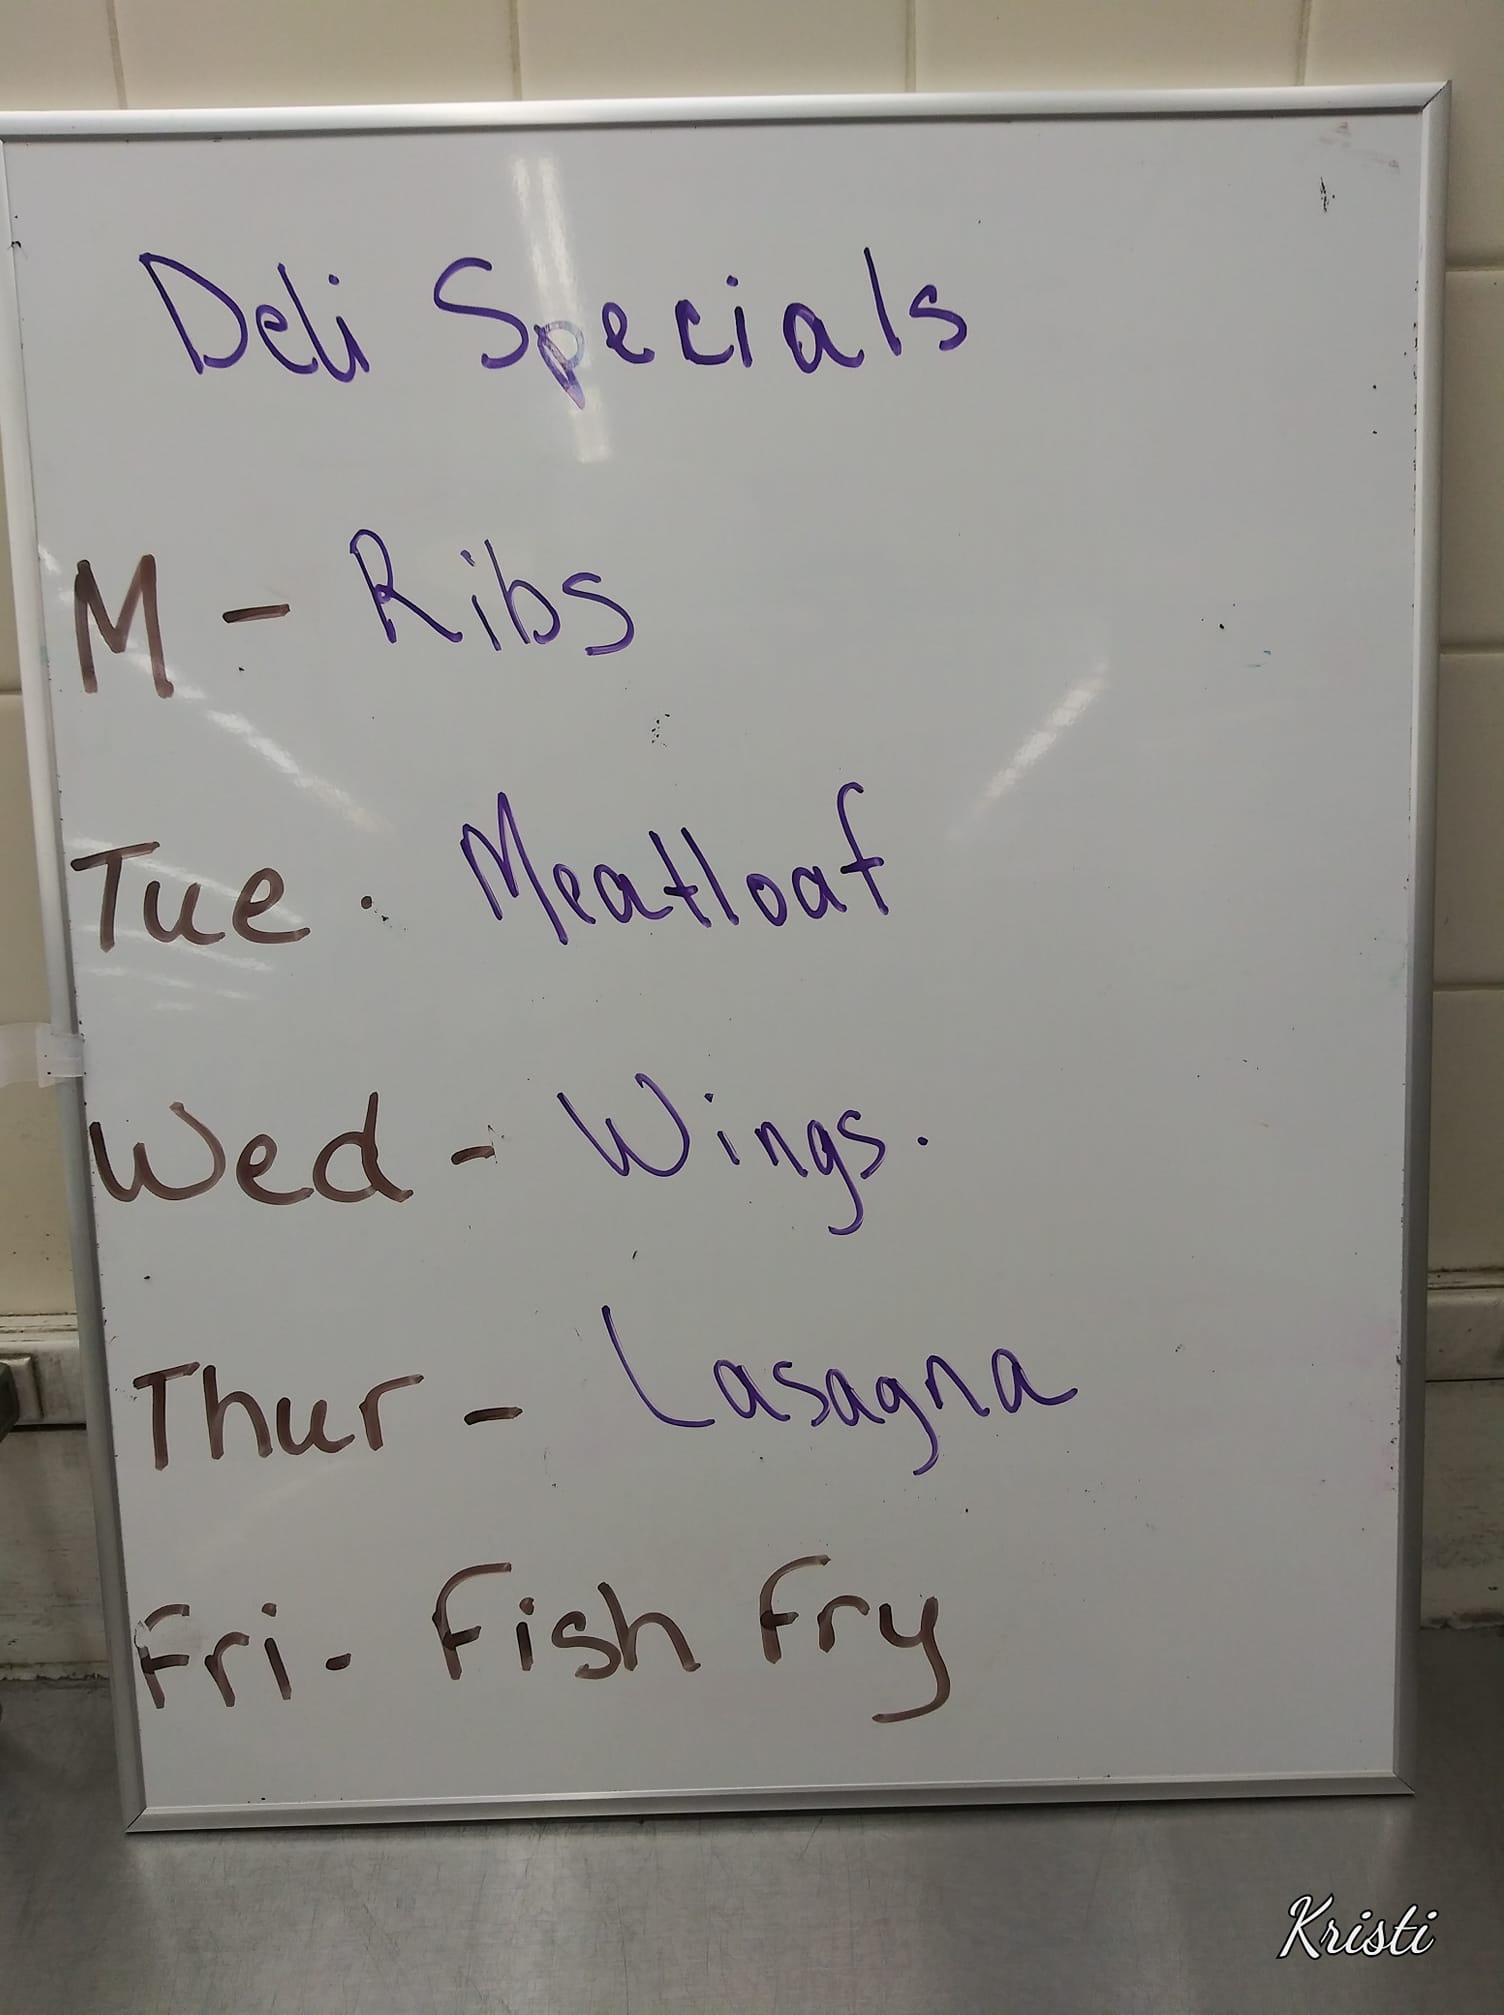 Deli Specials
M - Ribs
Tue. Meatloaf
Wed - Wings.
Thur - Lasagna
Fri- Fish Fry
Kristi